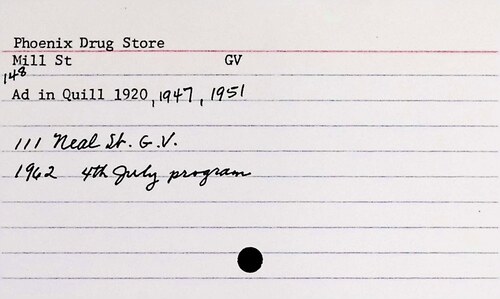 Phoenix Drug Store
Mill St GV
148
Ad in Quill 1920, 1947, 1951
111 Neal St. G.V.
1962 4th July program